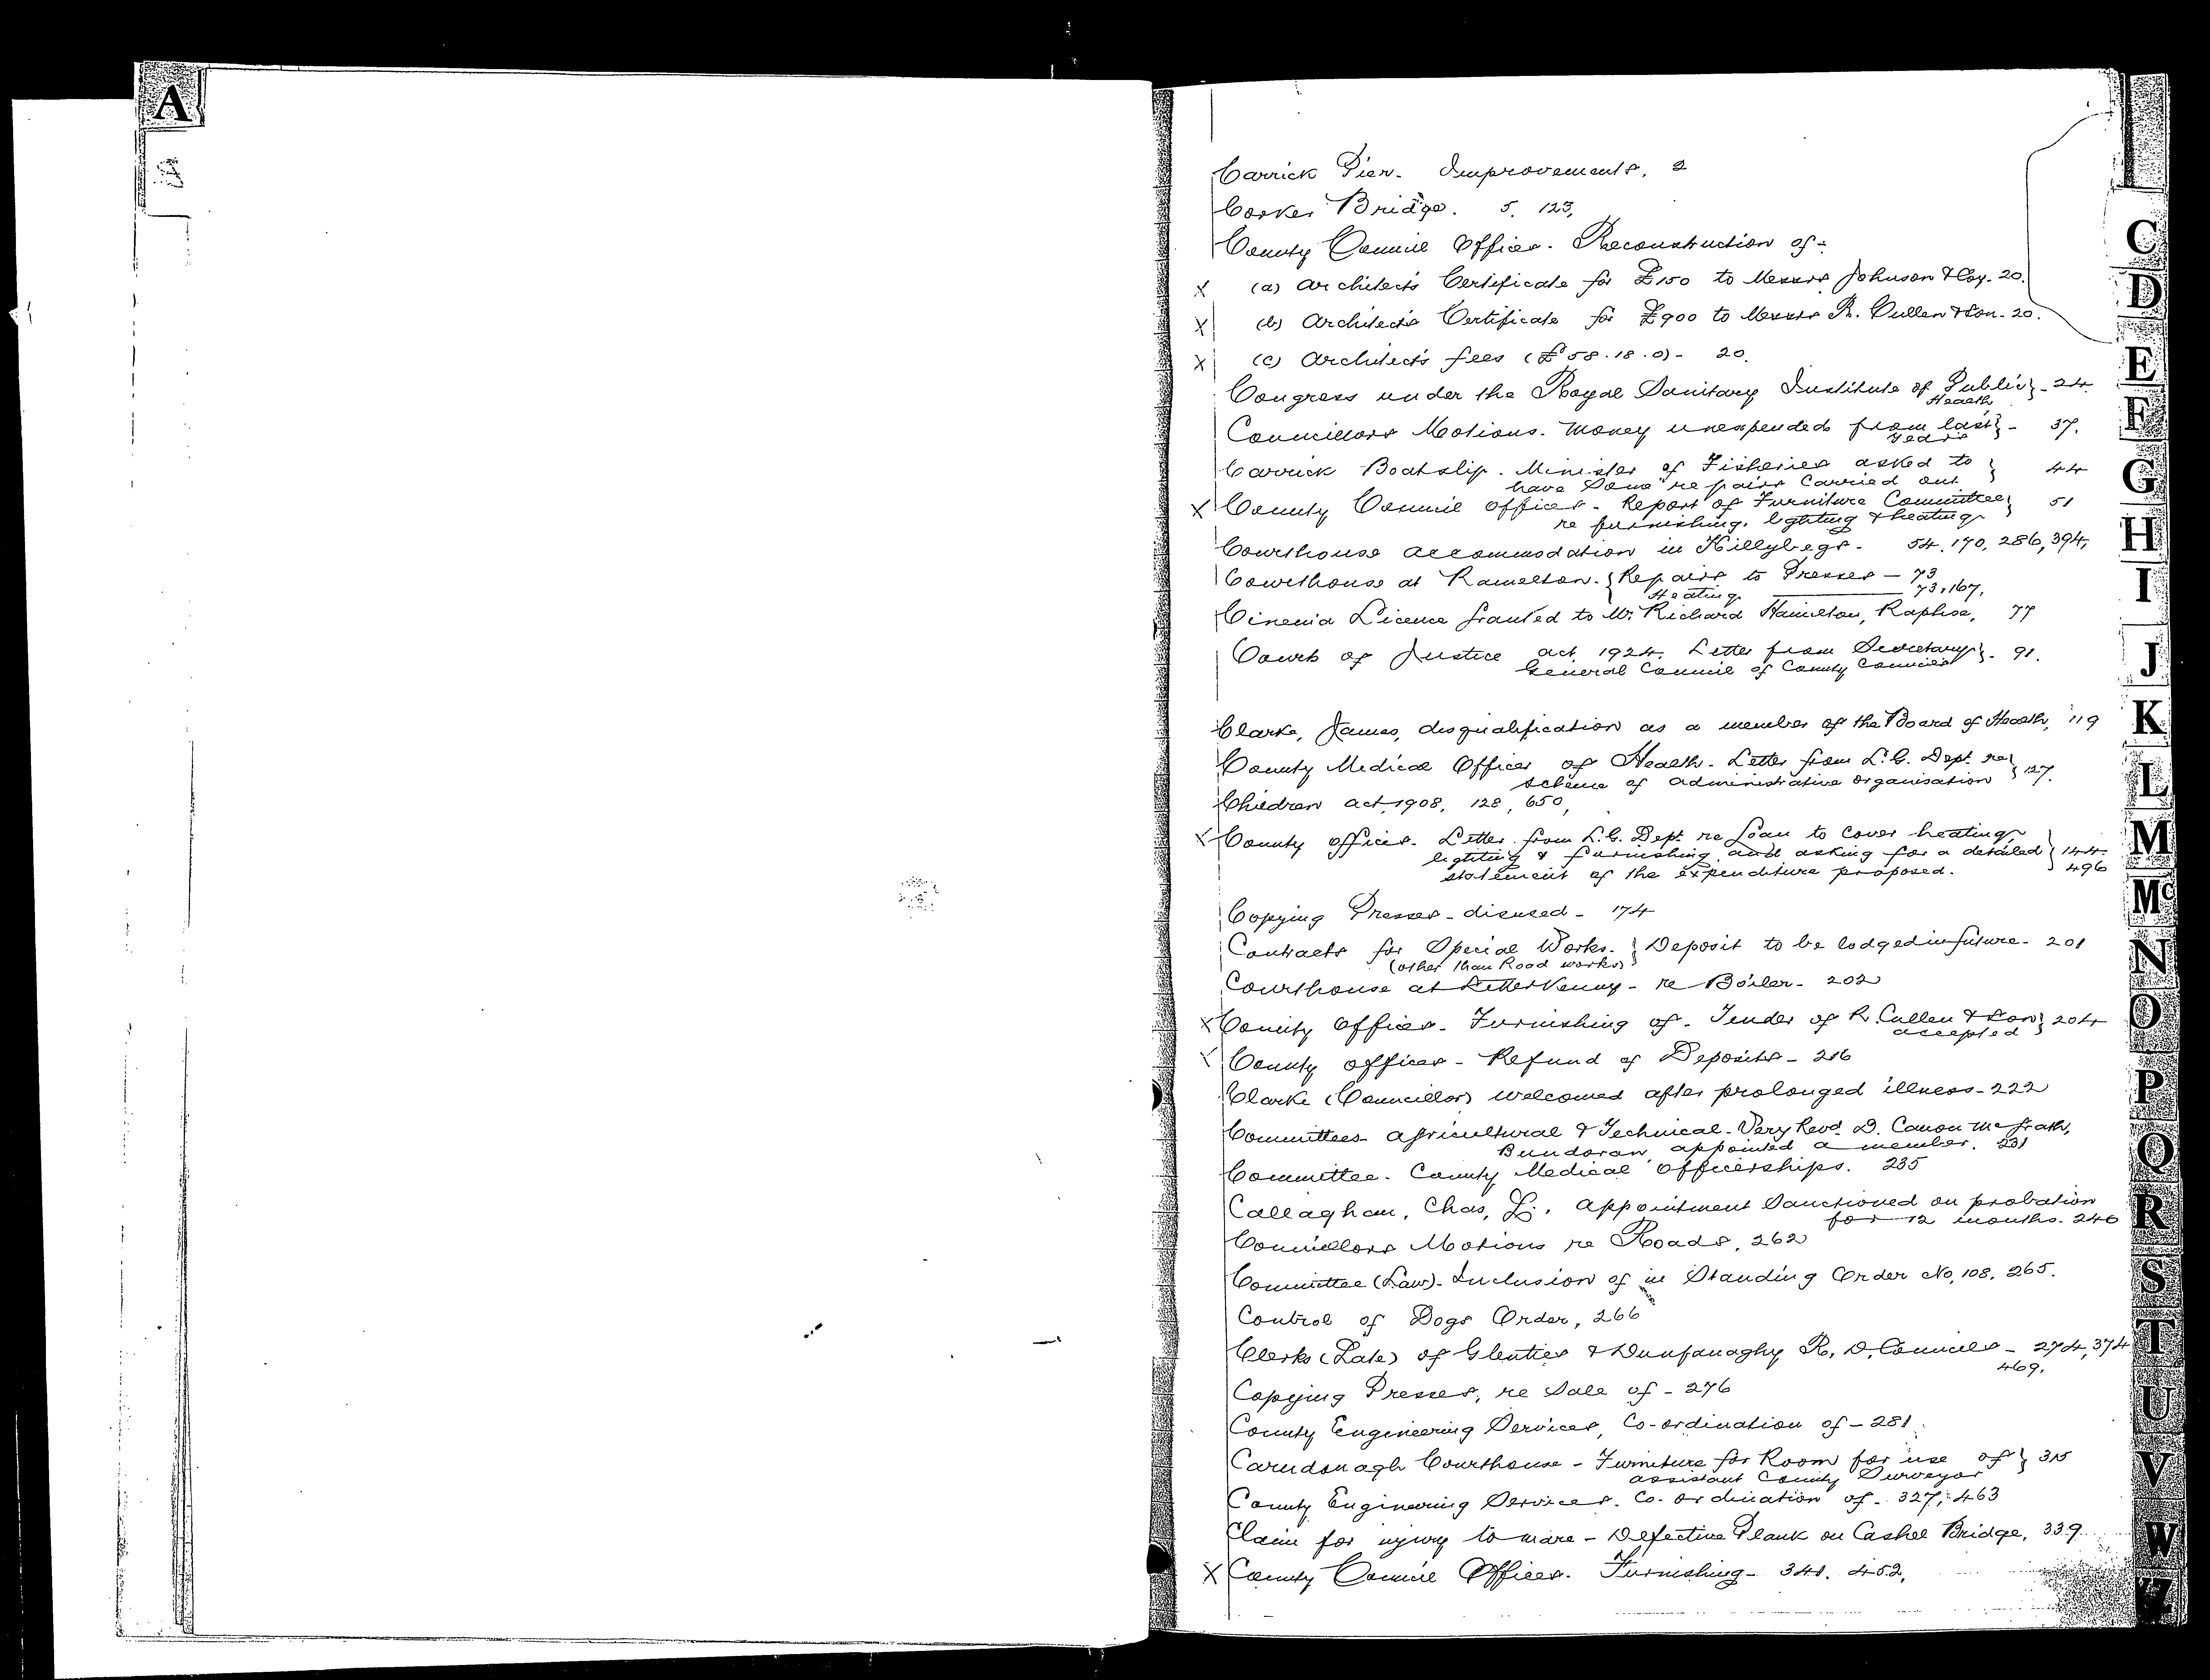 A
Carrick Pier. Improvements. 2
Corker Bridge. 5. 123,
County Council Offices. Reconstruction of-
X (a) Architects Certificate for £150 to Messrs Johnson & Coy. 20.
X (b) Architects Certificate for £900 to Messrs R. Cullen & Son. 20.
X (c) Architects fees (£58.18.0) - 20.
Congress under the Royal Sanitary Institute of Public } - 24.
Health
Councillors Motions. Money unexpended from last } - 37.
years
Carrick Boatslip. Minister of Fisheries asked to } 44
have some repairs carried out
X County Council offices. Report of Furniture Committee } 51
re furnishing, lighting & heating
Courthouse accommodation in Killybegs. 54, 170, 286, 394,
Courthouse at Ramelton. { Repairs to Presses - 73
Heating 73, 167,
Cinema Licence granted to Mr Richard Hamilton, Raphoe, 77
Courts of Justice act 1924. Letter from Secretary } - 91.
General Council of County Councils
Clarke, James, disqualification as a member of the Board of Health, 119
County Medical Officer of Health. Letter from L.G. Dept. re } 127.
scheme of administrative organisation
Children act 1908, 128, 650,
X County offices. Letter from L.G. Dept re Loan to cover heating
lighting & furnishing and asking for a detailed } 144.
statement of the expenditure proposed. 496
Copying Presses - disused - 174
Contracts for Special Works. } Deposit to be lodged in future - 201
(other than Road works)
Courthouse at Letterkenny - re Boiler - 202
X County Offices. Furnishing of. Tender of R. Cullen & Son } 204
accepted
X County offices - Refund of Deposits - 216
Clarke (Councillor) welcomed after prolonged illness - 222
Committees Agricultural & Technical. Very Revd. D. Canon McGrath,
Bundoran, appointed a member. 231
Committee. County Medical Officerships. 235
Callaghan, Chas, appointment sanctioned on probation
for 12 months. 246
Councillors Motions re Roads, 262
Committee (Law). Inclusion of in Standing Order No, 108, 265.
Control of Dogs Order, 266
Clerks (Late) of Glenties & Dunfanaghy R. D. Councils - 274, 374
469.
Copying Presses, re Sale of - 276
County Engineering Services, Co-ordination of - 281.
Carndonagh Courthouse - Furniture for Room for use of } 315
assistant County Surveyor
County Engineering Services. Co-ordination of. 327, 463
Claim for injury to mare - Defective Plank on Cashel Bridge, 339.
X County Council Offices. Furnishing - 341. 452.
C
D
E
F
G
H
I
J
K
L
M
Mc
N
O
P
Q
R
S
T
U
V
W
YZ